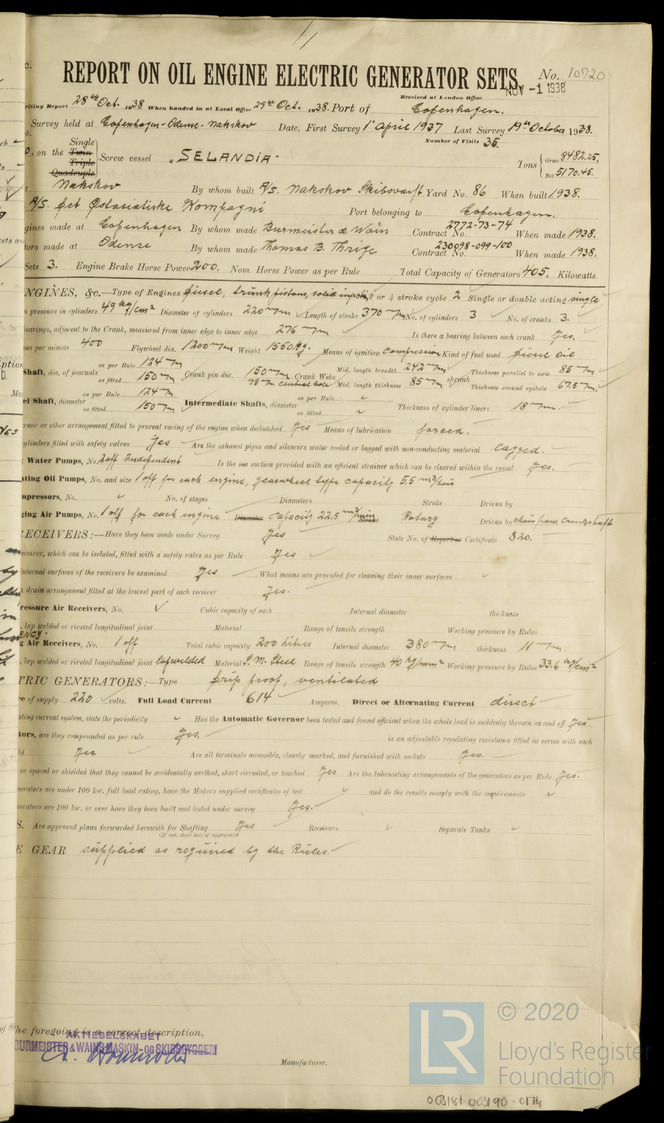 REPORT ON OIL ENGINE ELECTRIC GENERATOR SETS.
No. 10720
Received at London Office NOV -1 1938
Writing Report 28th Oct. 1938 When handed in at Local Office 29th Oct. 1938. Port of Copenhagen.
Survey held at Copenhagen-Odense-Nakskov Date, First Survey 1st April 1937 Last Survey 19th October 1938.
Number of Visits 35.
on the Single Twin Triple Quadruple Screw vessel "SELANDIA" Tons Gross 8482.25. Net 5170.45.
Nakskov By whom built A/s. Nakskov Skibsværft Yard No. 86 When built 1938.
A/s Det Østasiatiske Kompagni Port belonging to Copenhagen.
gines made at Copenhagen By whom made Burmeister & Wain Contract No. 2772-73-74 When made 1938.
ors made at Odense By whom made Thomas B. Thrige Contract No. 230098-099-100 When made 1938.
Sets 3. Engine Brake Horse Power 200. Nom. Horse Power as per Rule Total Capacity of Generators 405. Kilowatts.
ENGINES, &c.—Type of Engines Diesel, trunk pistons, solid injection 2 or 4 stroke cycle 2 Single or double acting single
pressure in cylinders 49 kg/cm² Diameter of cylinders 220 m/m Length of stroke 370 m/m No. of cylinders 3 No. of cranks 3.
bearings, adjacent to the Crank, measured from inner edge to inner edge 276 m/m Is there a bearing between each crank Yes.
ns per minute 400 Flywheel dia. 1200 m/m Weight 1550 kg. Means of ignition compression Kind of fuel used Diesel oil
Shaft, dia. of journals as per Rule 124 m/m as fitted 150 m/m Crank pin dia. 150 m/m 75 m/m central hole Crank Webs Mid. length breadth 242 m/m Mid. length thickness 85 m/m shrunk Thickness parallel to axis 85 m/m Thickness around eyehole 67.5 m/m.
el Shaft, diameter as per Rule 124 m/m as fitted 150 m/m Intermediate Shafts, diameter as per Rule " as fitted " Thickness of cylinder liners 18 m/m.
nor or other arrangement fitted to prevent racing of the engine when declutched Yes Means of lubrication forced.
cylinders fitted with safety valves Yes Are the exhaust pipes and silencers water cooled or lagged with non-conducting material lagged.
Water Pumps, No. 2 off Independent Is the sea suction provided with an efficient strainer which can be cleared within the vessel Yes.
ating Oil Pumps, No. and size 1 off for each engine, gearwheel type capacity 5.5 m³/hour
mpressors, No. " No. of stages Diameters Stroke Driven by
ing Air Pumps, No. 1 off for each engine Diameter capacity 22.5 m³/min Stroke Rotary Driven by chain from camshaft
RECEIVERS:—Have they been made under Survey Yes State No. of Report or Certificate 820.
receiver, which can be isolated, fitted with a safety valve as per Rule Yes
nternal surfaces of the receivers be examined Yes What means are provided for cleaning their inner surfaces "
drain arrangement fitted at the lowest part of each receiver Yes.
ressure Air Receivers, No. Cubic capacity of each Internal diameter thickness
lap welded or riveted longitudinal joint Material Range of tensile strength Working pressure by Rules
g Air Receivers, No. 1 off Total cubic capacity 200 litres Internal diameter 380 m/m thickness 11 m/m.
lap welded or riveted longitudinal joint lapwelded Material S.M. Steel Range of tensile strength 40 kg/mm² Working pressure by Rules 33.6 kg/cm²
TRIC GENERATORS:—Type Drip proof, ventilated
re of supply 220 volts. Full Load Current 614 Amperes. Direct or Alternating Current direct
ating current system, state the periodicity " Has the Automatic Governor been tested and found efficient when the whole load is suddenly thrown on and off Yes
ators, are they compounded as per rule Yes. is an adjustable regulating resistance fitted in series with each
ld Yes. Are all terminals accessible, clearly marked, and furnished with sockets Yes.
so spaced or shielded that they cannot be accidentally earthed, short circuited, or touched Yes Are the lubricating arrangements of the generators as per Rule Yes.
nerators are under 100 kw. full load rating, have the Makers supplied certificates of test " and do the results comply with the requirements "
erators are 100 kw. or over have they been built and tested under survey Yes.
S. Are approved plans forwarded herewith for Shafting Yes Receivers " Separate Tanks "
(If not, state date of approval)
E GEAR supplied as required by the Rules.
The foregoing is a correct description,
AKTIESELSKABET
BURMEISTER & WAIN'S MASKIN- OG SKIBSBYGGERI
Manufacturer.
LR © 2020
Lloyd's Register
Foundation
003181-003190-0174